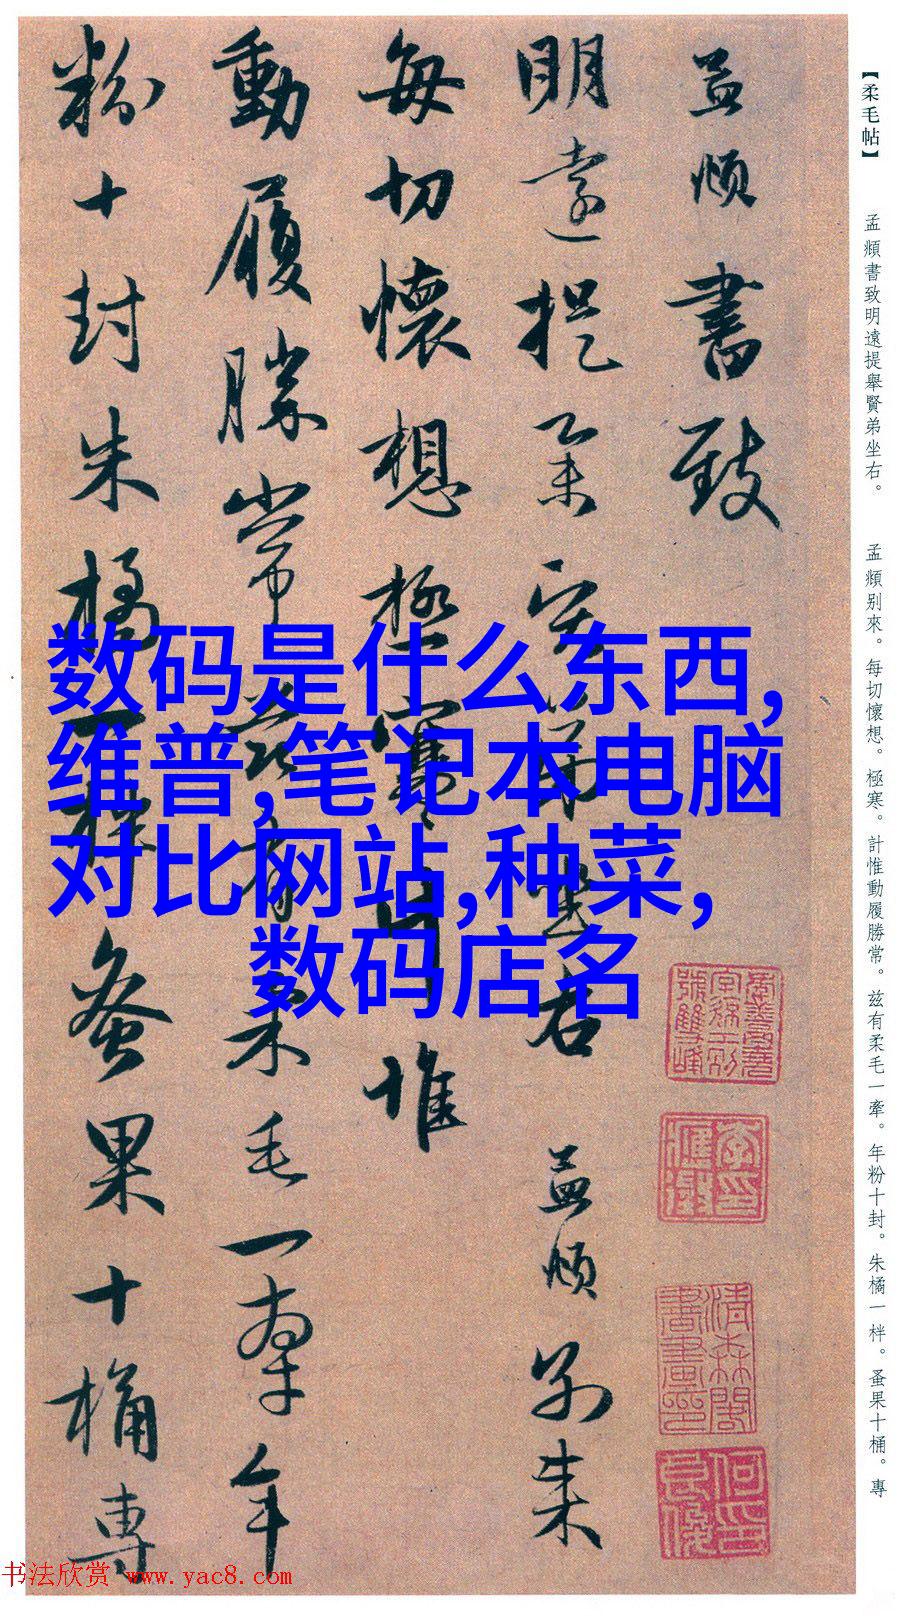 【柔毛帖】
孟頫書致明遠提舉賢弟坐右。
孟頫别來。每切懷想。極寒。計惟動履勝常。兹有柔毛一牽。年粉十封。朱橘一柈。蚤果十桶。專
孟頫書致
明遠提舉賢弟坐右 孟頫别來
每切懷想極寒計惟
動履勝常兹有柔毛一牽年
粉十封朱橘一柈蚤果十桶專
数码是什么东西,
维普,笔记本电脑
对比网站,种菜,
数码店名
书法欣赏 www.yac8.com